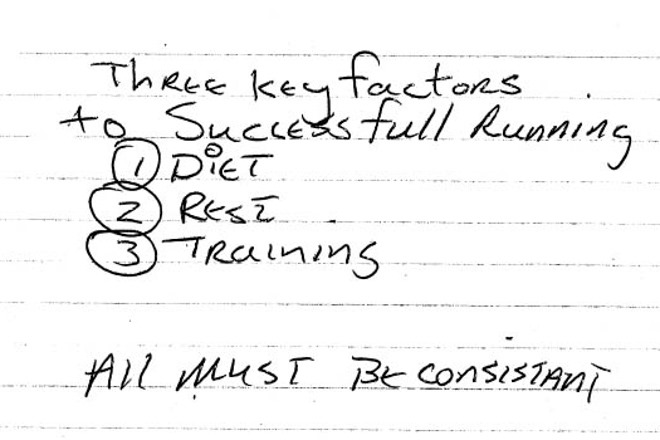 Three key factors
to Successfull Running
1 Diet
2 Rest
3 Training
All must be consistant